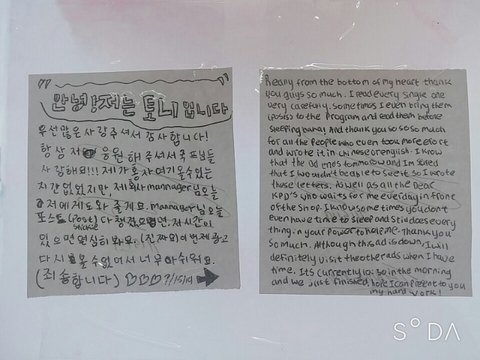 안녕! 저는 토니입니다
우선 많은 사랑 주셔서 감사합니다!
항상 저 응원 해 주셔서 국프님들
사랑해요!!! 제가 혼자 여기 올 수 있는
시간 없었지만, 제 회사 manager님 오늘
저에게 도와 줄게요. manager님 오늘
포스트 (Post)
있으면 열심히 봐요.
다시 올 수 없어서 너무 아쉬워요.
(죄송합니다)
Really from the bottom of my heart thank
you guys so much. I read every single one
very carefully, sometimes I even bring them
(posts) to the Program and read them before
sleeping away. And thank you so so so much
for all the people who even took more effort
and wrote it in chinese or english. I know
that the ad ends tommorow and Im sorry
that I wouldn't be able to see it, so I wrote
these letters. As well as all the Dear
KPD's who waits for me everyday in front
of the shop. I know some times you don't
even have time to sleep and still does every
thing in your power to help me. Thank you
so much. Although this ad is down, I will
definitely visit the other ads when I have
time. Its currently 10:50 in the morning
and we just finished, hope I can present to you
my hard work!
SODA